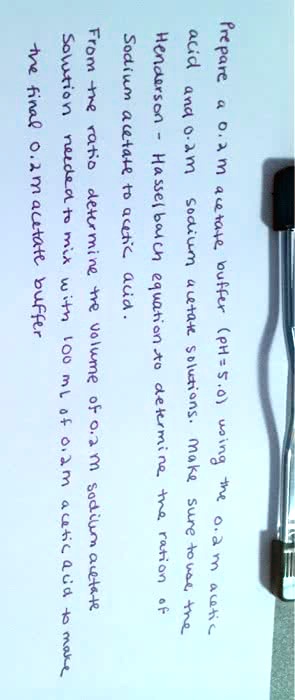 Prepare a 0.2 m acetate buffer (pH=5.0) using the 0.2 m acetic
acid and 0.2m sodium acetate solutions. Make sure to use the
Henderson - Hasselbalch equation to determine the ration of
Sodium acetate to acetic acid.
From the ratio determine the volume of 0.2 m sodium acetate
Solution needed to mix with 100 mL of 0.2 m acetic acid to make
the final 0.2m acetate buffer